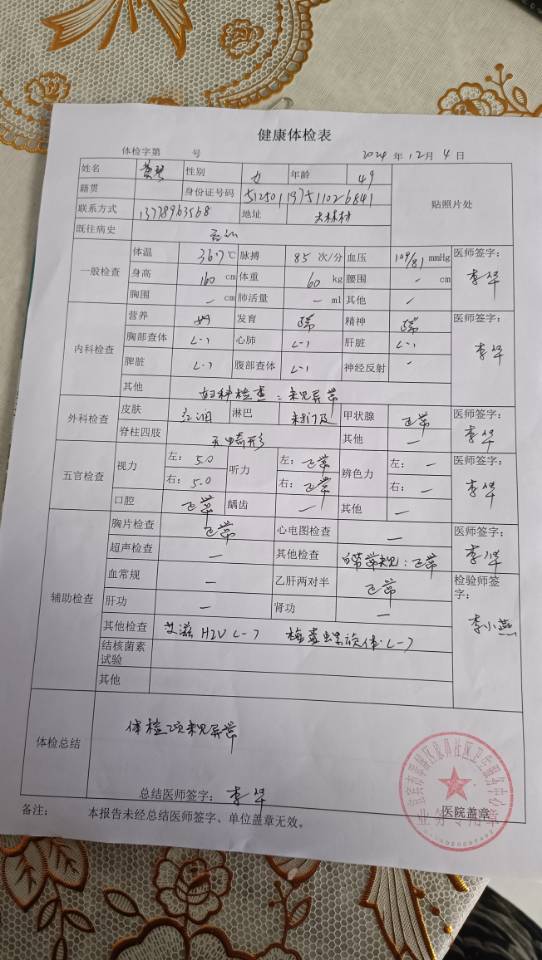 健康体检表
体检字第 号 2024 年 12 月 4 日
姓名 性别 女 年龄 49
籍贯 身份证号码 贴照片处
联系方式 13778963568 地址
既往病史 否认
一般检查 体温 36.7 ℃ 脉搏 85 次/分 血压 109/81 mmHg 医师签字:
身高 160 cm 体重 60 kg 腰围 — cm 李华
胸围 — cm 肺活量 — ml 其他 —
内科检查 营养 发育 正常 精神 正常 医师签字:
胸部查体 (-) 心肺 (-) 肝脏 (-) 李华
脾脏 (-) 腹部查体 (-) 神经反射 —
其他 妇科检查:未见异常
外科检查 皮肤 红润 淋巴 未触及 甲状腺 正常 医师签字:
脊柱四肢 无畸形 其他 — 李华
五官检查 视力 左: 5.0 听力 左: 正常 辨色力 左: — 医师签字:
右: 5.0 右: 正常 右: — 李华
口腔 正常 龋齿 — 其他 —
辅助检查 胸片检查 正常 心电图检查 — 医师签字:
超声检查 — 其他检查 常规:正常 李华
血常规 — 乙肝两对半 正常 检验师签字:
肝功 — 肾功 — 李小燕
其他检查 艾滋 HIV (-) 梅毒螺旋体(-)
结核菌素试验
其他
体检总结 体检项未见异常
总结医师签字: 李华 医院盖章
备注: 本报告未经总结医师签字、单位盖章无效。